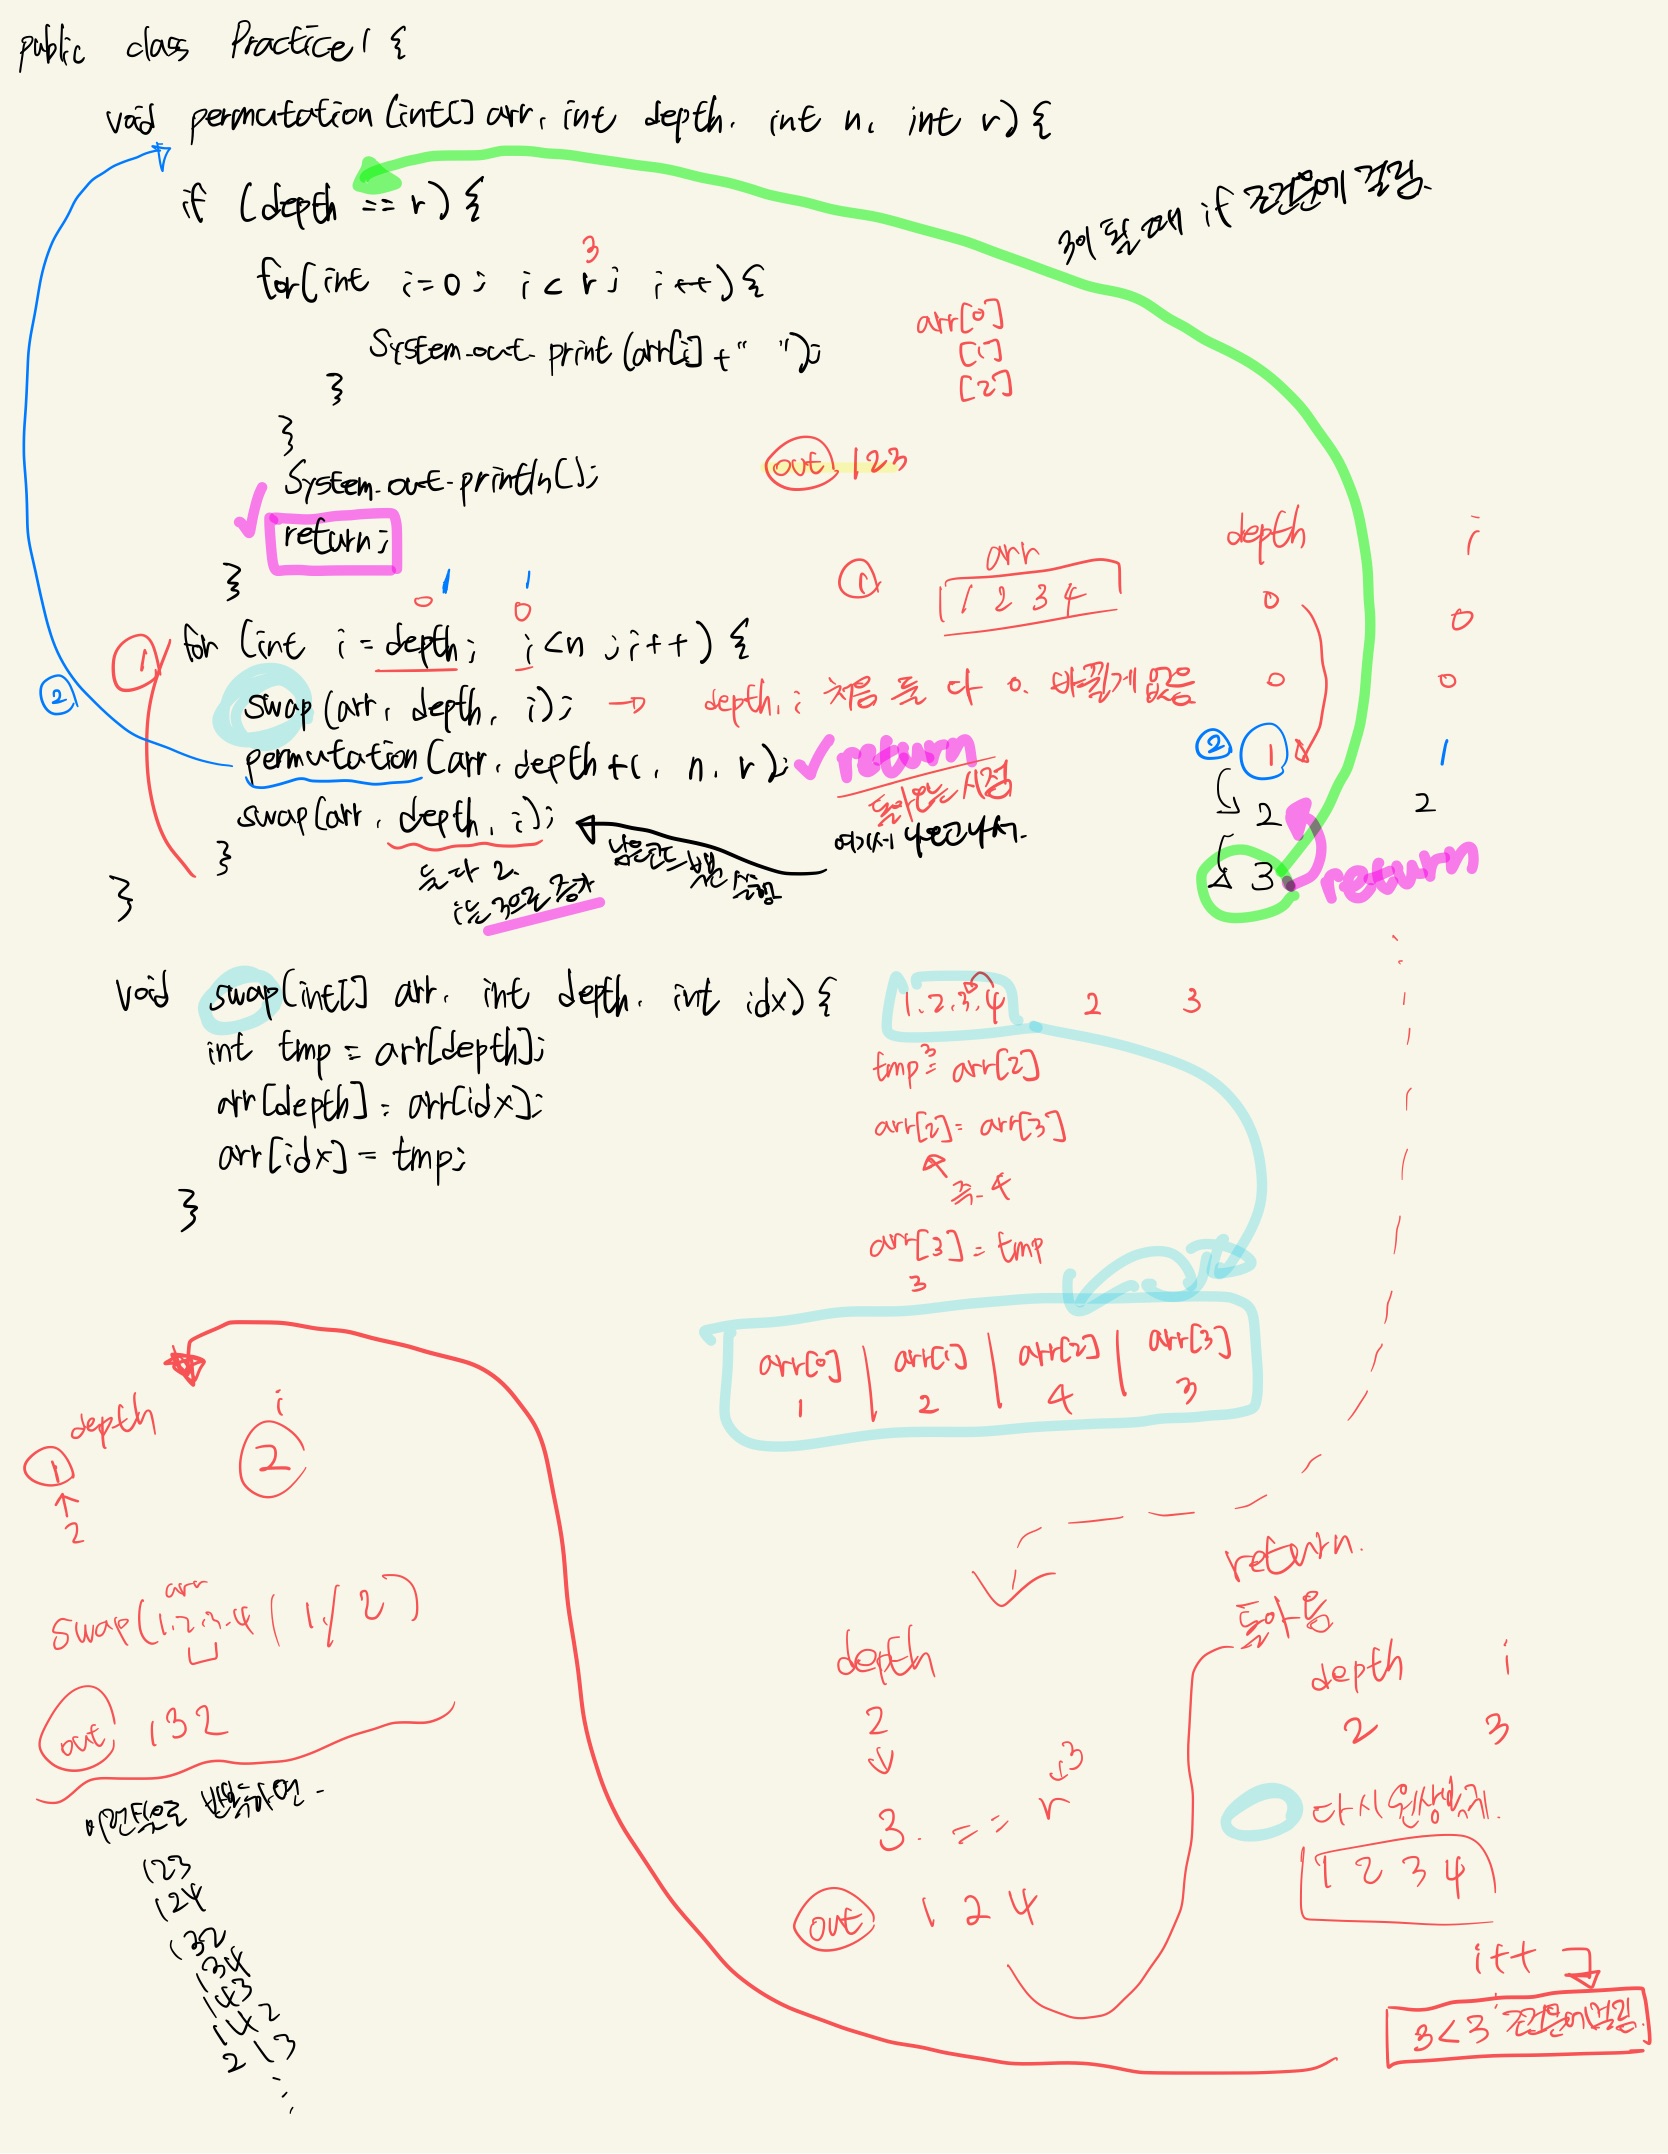 public class Practice1 {
void permutation (int[] arr, int depth, int n, int r) {
if (depth == r) {
3이 될 때 if 조건문에 걸림.
3
for(int i=0; i<r; i++) {
System.out.print(arr[i]+" ");
}
arr[0]
[1]
[2]
}
out 123
System.out.println();
return;
}
depth i
① arr
1 2 3 4 0 0
0 1 0 1
① for (int i = depth; i<n ; i++) {
② swap(arr, depth, i); → depth, i 처음 둘 다 0. 바뀔게 없음 0 0
permutation(arr, depth+1, n, r); ✓ return
돌아오는 시점
② 1 1
swap(arr, depth, i);
여기서 나오고나서.
2 2
3 return
}
둘 다 2.
i는 3으로 증가
}
void swap(int[] arr, int depth, int idx) {
1.2.3.4 2 3
int tmp = arr[depth];
arr[depth] = arr[idx];
arr[idx] = tmp;
}
3
tmp = arr[2]
arr[2] = arr[3]
즉. 4
arr[3] = tmp
3
arr[0] | arr[1] | arr[2] | arr[3]
1 2 4 3
depth i
① ②
↑
2
arr
swap(1.2.3.4 ( 1, 2)
out 132
이런식으로 반복하면.
123
124
132
134
143
142
213
return.
돌아옴
depth
2
↓
3. == r
3
out 1 2 4
depth i
2 3
다시 원상복귀.
1 2 3 4
i++
3<3 조건문에 걸림.